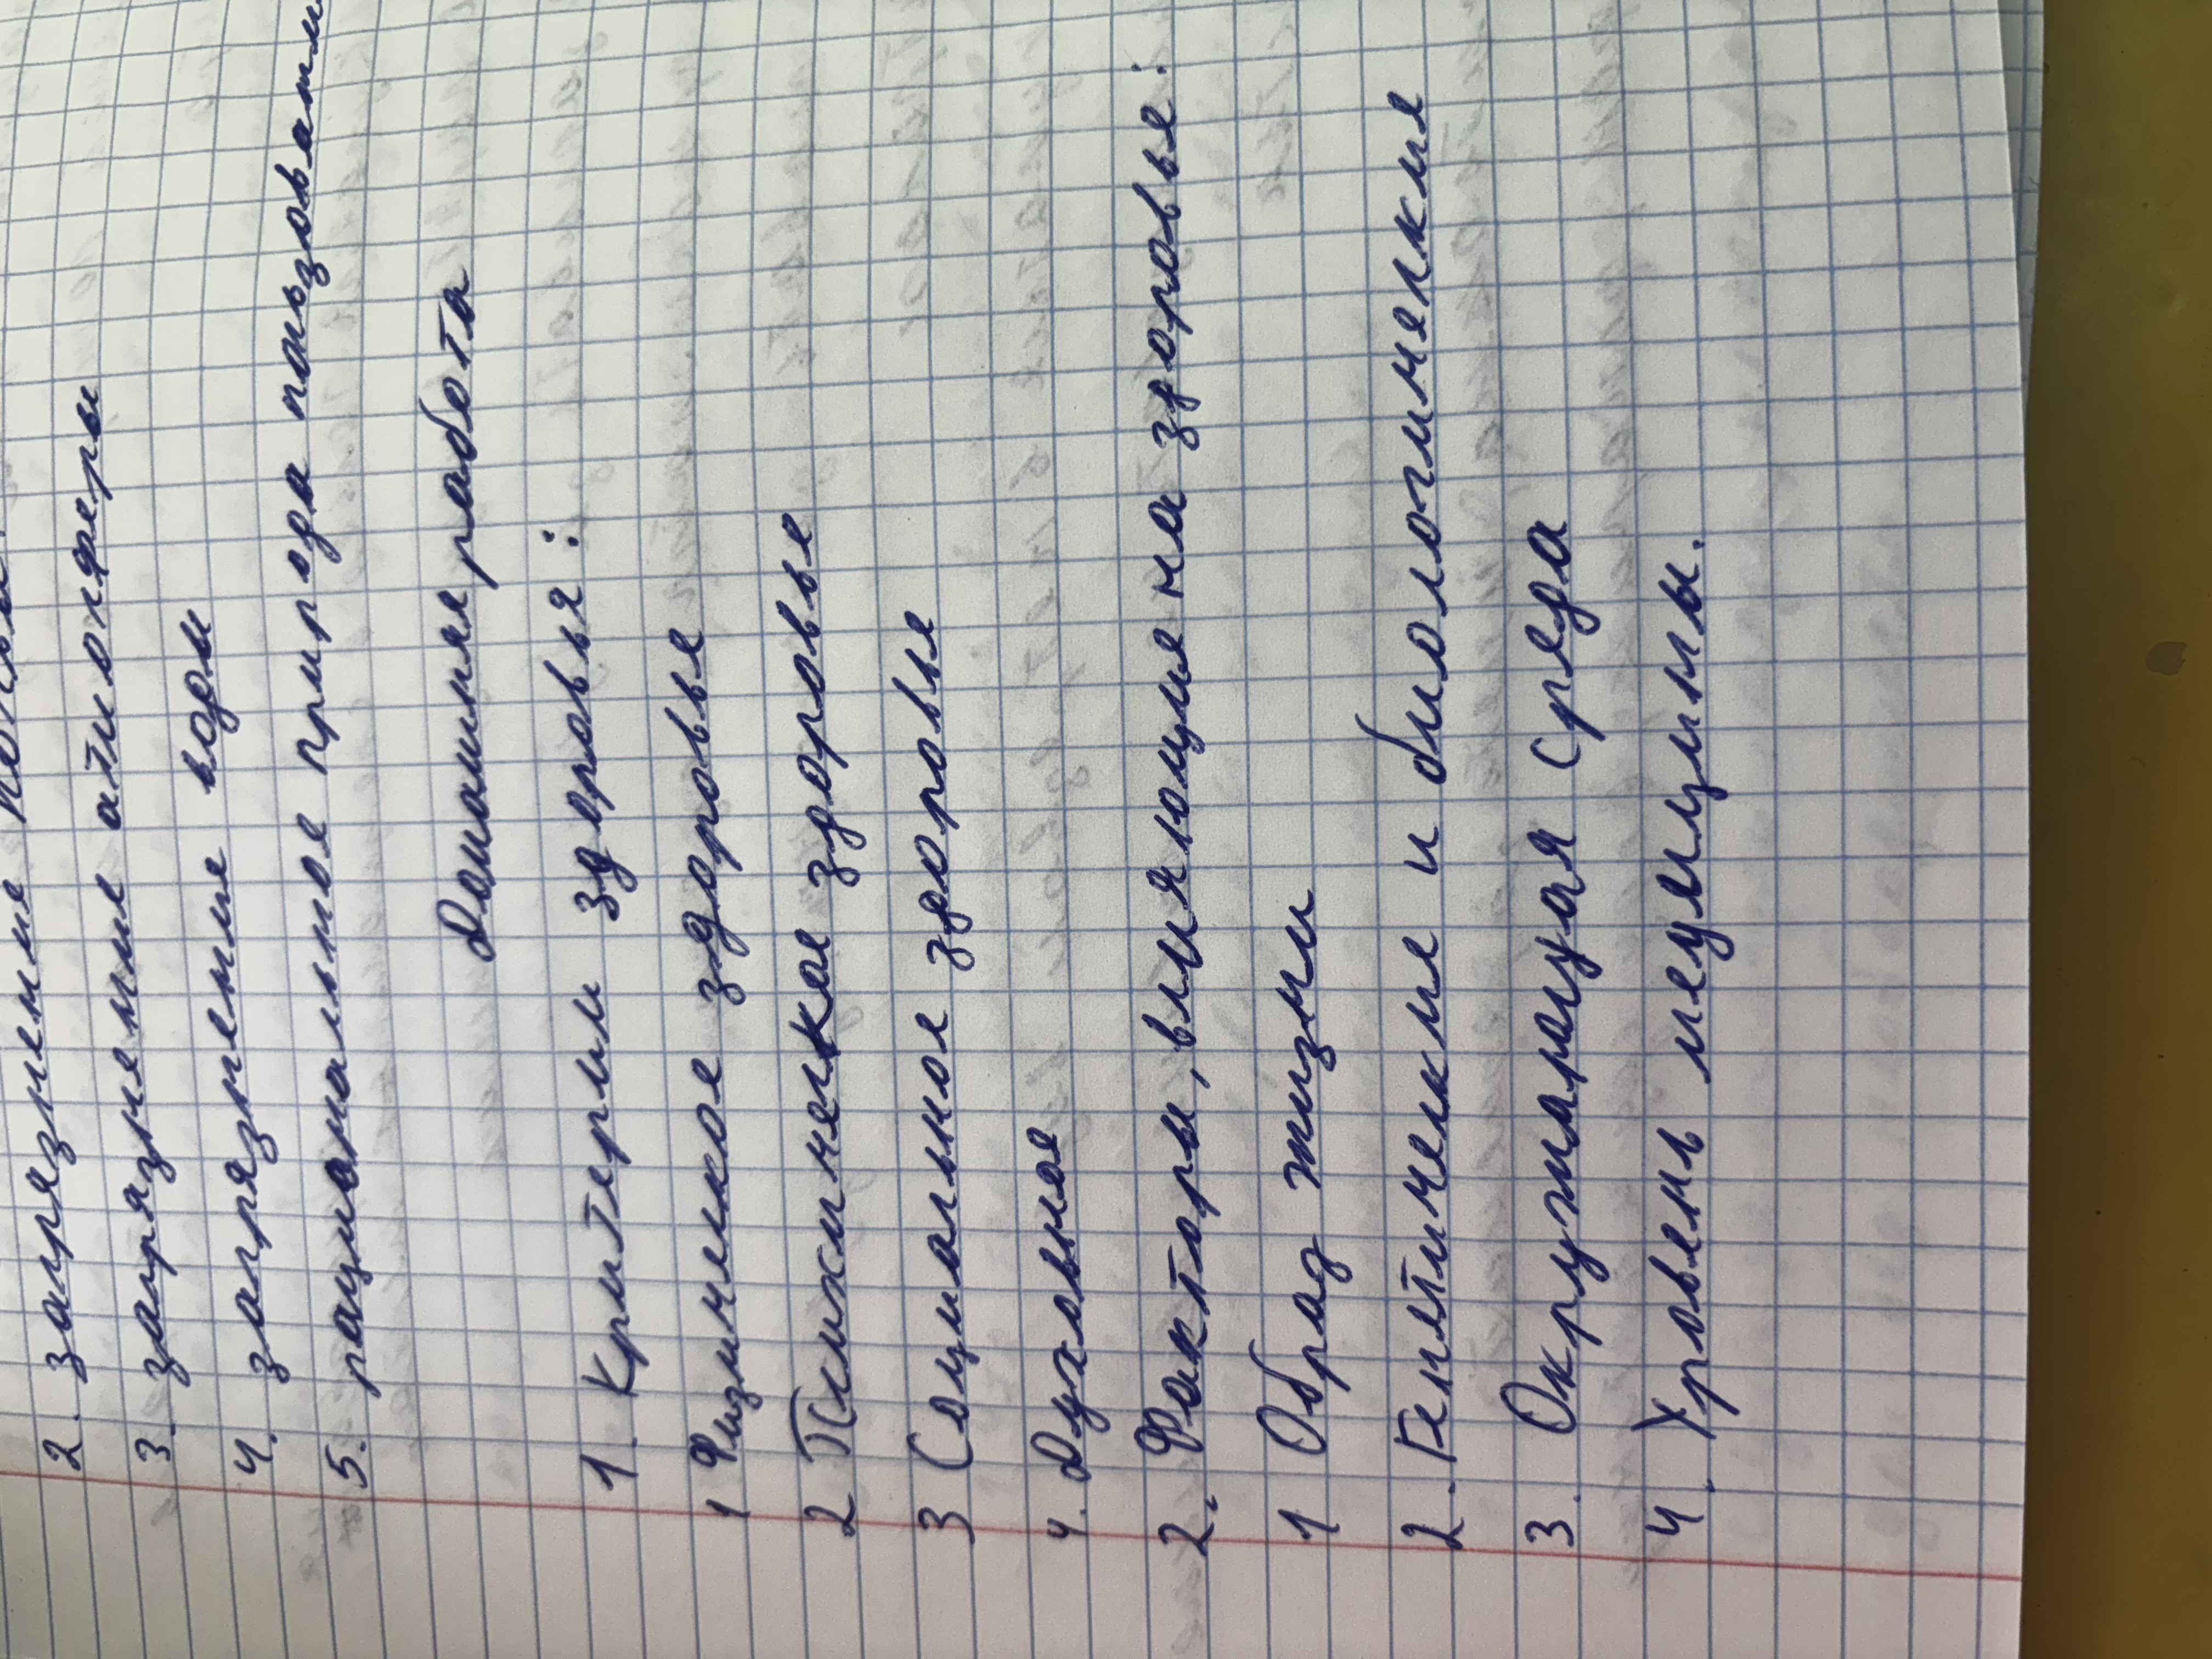 2. загрязнение
3. загрязнение атмосферы
4. загрязнение воды
5. рациональное природа пользовани
Домашняя работа
1. Критерии здоровья:
1 Физическое здоровье
2 Психическое здоровье
3 Социальное здоровье
4. Духовное
2. Факторы, влияющие на здоровье:
1 Образ жизни
2. Генетические и биологические
3. Окружающая среда
4. Уровень медицины.